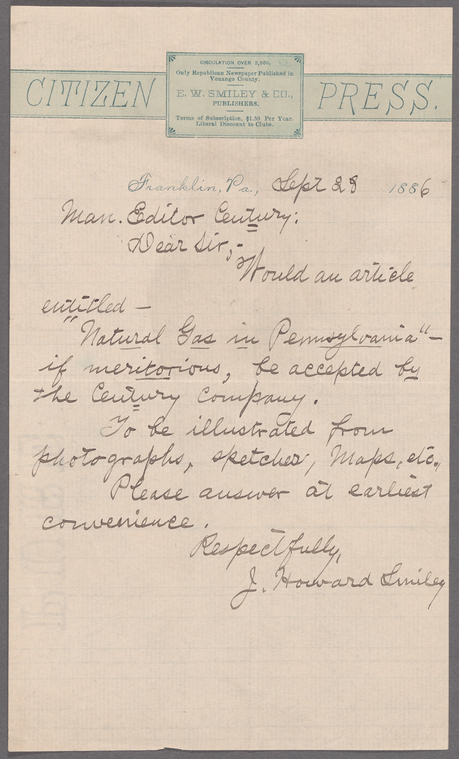 CIRCULATION OVER 2,500.
Only Republican Newspaper Published in
Venango County.
E. W. SMILEY & CO.,
PUBLISHERS.
Terms of Subscription, $1.50 Per Year.
Liberal Discount to Clubs.
CITIZEN PRESS.
Franklin, Pa., Sept 28 1886
Man. Editor Century:
Dear Sir;-
Would an article
entitled —
"Natural Gas in Pennsylvania"-
if meritorious, be accepted by
the Century Company.
To be illustrated from
photographs, sketches, Maps, etc.,
Please answer at earliest
convenience.
Respectfully,
J. Howard Smiley